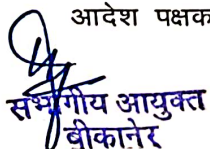 आदेश पक्षक
संभागीय आयुक्त
बीकानेर